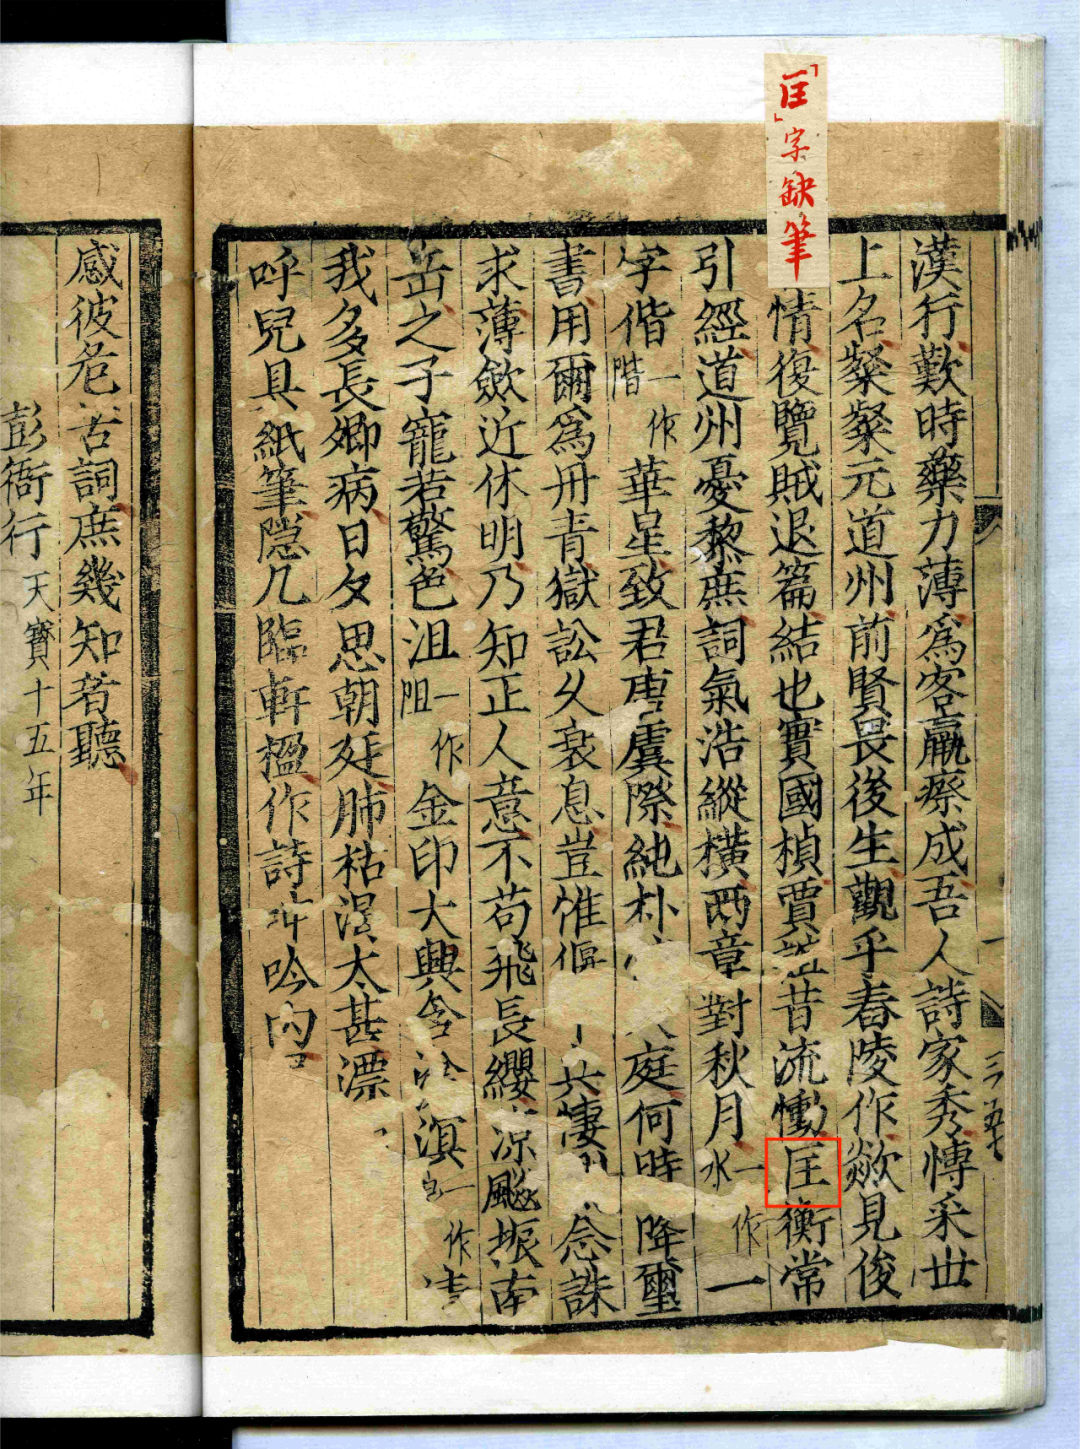 「匡」字缺筆
漢行歎時藥力薄爲客羸瘵成吾人詩家秀慱采世
上名粲粲元道州前賢畏後生觀乎舂陵作歘見俊
情復覽賊退篇結也實國楨賈誼昔流慟匡衡常
引經道州憂黎庶詞氣浩縱橫兩章對秋月一作水一
字偕一作階華星致君唐虞際純朴庭何時降璽
書用爾爲丹青獄訟久衰息豈惟偃兵悽念誅
求薄斂近休明乃知正人意不苟飛長纓凉飈振南
岳之子寵若驚色沮一作阻金印大興含滄溟一作清
我多長卿病日夕思朝廷肺枯渴太甚漂
呼兒具紙筆隱几臨軒楹作詩呻吟內
感彼危苦詞庶幾知者聽
彭衙行天寶十五年